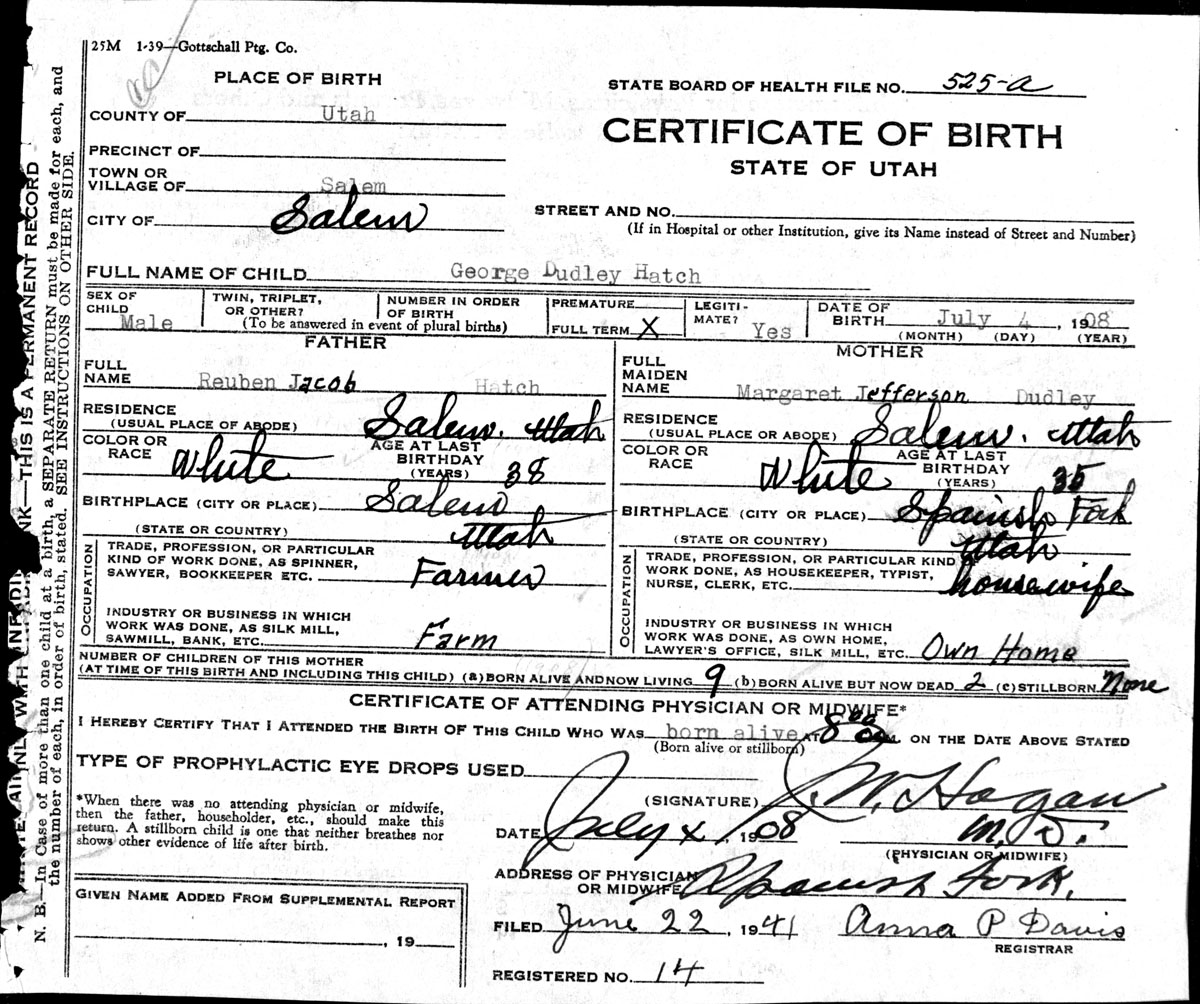 25M 1-39—Gottschall Ptg. Co.
PLACE OF BIRTH
STATE BOARD OF HEALTH FILE NO. 525-a
COUNTY OF Utah
CERTIFICATE OF BIRTH
PRECINCT OF
STATE OF UTAH
TOWN OR
VILLAGE OF Salem
CITY OF Salem
STREET AND NO.
(If in Hospital or other Institution, give its Name instead of Street and Number)
FULL NAME OF CHILD George Dudley Hatch
SEX OF
CHILD Male
TWIN, TRIPLET,
OR OTHER?
NUMBER IN ORDER
OF BIRTH
(To be answered in event of plural births)
PREMATURE
FULL TERM X
LEGITI-
MATE? Yes
DATE OF
BIRTH July 4, 1908
(MONTH) (DAY) (YEAR)
FATHER
FULL
NAME Reuben Jacob Hatch
RESIDENCE
(USUAL PLACE OF ABODE) Salem. Utah
COLOR OR
RACE White
AGE AT LAST
BIRTHDAY
(YEARS) 38
BIRTHPLACE (CITY OR PLACE) Salem
(STATE OR COUNTRY) Utah
OCCUPATION
TRADE, PROFESSION, OR PARTICULAR
KIND OF WORK DONE, AS SPINNER,
SAWYER, BOOKKEEPER ETC. Farmer
INDUSTRY OR BUSINESS IN WHICH
WORK WAS DONE, AS SILK MILL,
SAWMILL, BANK, ETC. Farm
MOTHER
FULL
MAIDEN
NAME Margaret Jefferson Dudley
RESIDENCE
(USUAL PLACE OR ABODE) Salem. Utah
COLOR OR
RACE White
AGE AT LAST
BIRTHDAY
(YEARS) 35
BIRTHPLACE (CITY OR PLACE) Spanish Fork
(STATE OR COUNTRY) Utah
OCCUPATION
TRADE, PROFESSION, OR PARTICULAR KIND OF
WORK DONE, AS HOUSEKEEPER, TYPIST,
NURSE, CLERK, ETC. housewife
INDUSTRY OR BUSINESS IN WHICH
WORK WAS DONE, AS OWN HOME,
LAWYER'S OFFICE, SILK MILL, ETC. Own Home
NUMBER OF CHILDREN OF THIS MOTHER
(AT TIME OF THIS BIRTH AND INCLUDING THIS CHILD) (a) BORN ALIVE AND NOW LIVING 9 (b) BORN ALIVE BUT NOW DEAD 2 (c) STILLBORN None
CERTIFICATE OF ATTENDING PHYSICIAN OR MIDWIFE*
I HEREBY CERTIFY THAT I ATTENDED THE BIRTH OF THIS CHILD WHO WAS born alive AT 8 ON THE DATE ABOVE STATED
(Born alive or stillborn)
TYPE OF PROPHYLACTIC EYE DROPS USED
*When there was no attending physician or midwife,
then the father, householder, etc., should make this
return. A stillborn child is one that neither breathes nor
shows other evidence of life after birth.
(SIGNATURE) J. W. Hagan
DATE July x, 1908 M. D.
(PHYSICIAN OR MIDWIFE)
ADDRESS OF PHYSICIAN
OR MIDWIFE Spanish Fork.
GIVEN NAME ADDED FROM SUPPLEMENTAL REPORT
, 19
FILED June 22, 1941 Anna P Davis
REGISTRAR
REGISTERED NO. 14
THIS IS A PERMANENT RECORD
N. B.—In Case of more than one child at a birth, a SEPARATE RETURN must be made for each, and
the number of each, in order of birth, stated. SEE INSTRUCTIONS ON OTHER SIDE.